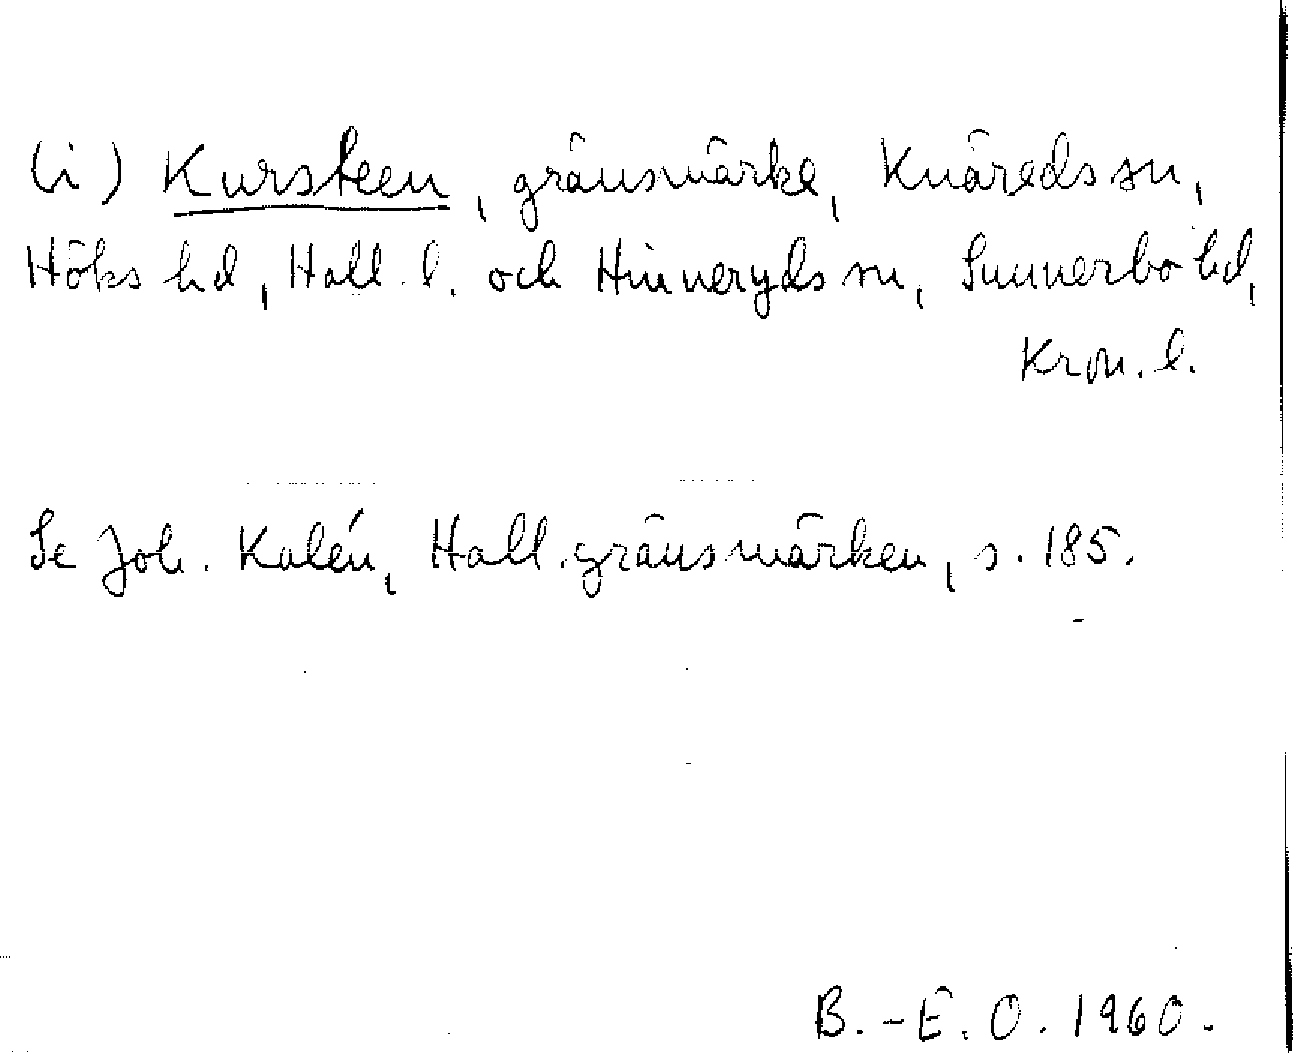 (i) Kursteen, gränsmärke, Knäreds sn,
Höks hd, Hall. l. och Hinneryds sn, Sunnerbo hd,
Kron. l.
Se Joh. Kalén, Hall. gränsmärken, s. 185.
B.-E. O. 1960.